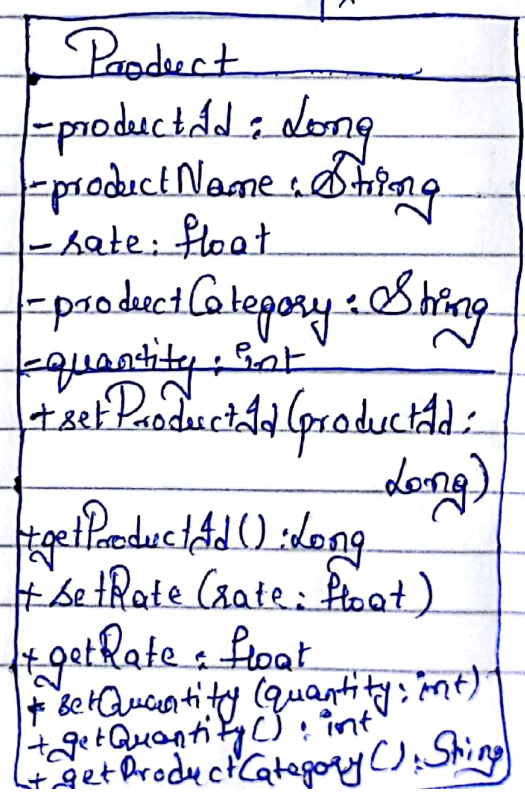 Product
-productId: Long
-productName: String
- rate: float
- productCategory: String
-quantity: int
+setProductId(productId:
Long)
+getProductId(): Long
+ setRate (rate: float)
+ getRate: float
+ setQuantity (quantity: int)
+ getQuantity(): int
+ getProductCategory(): String